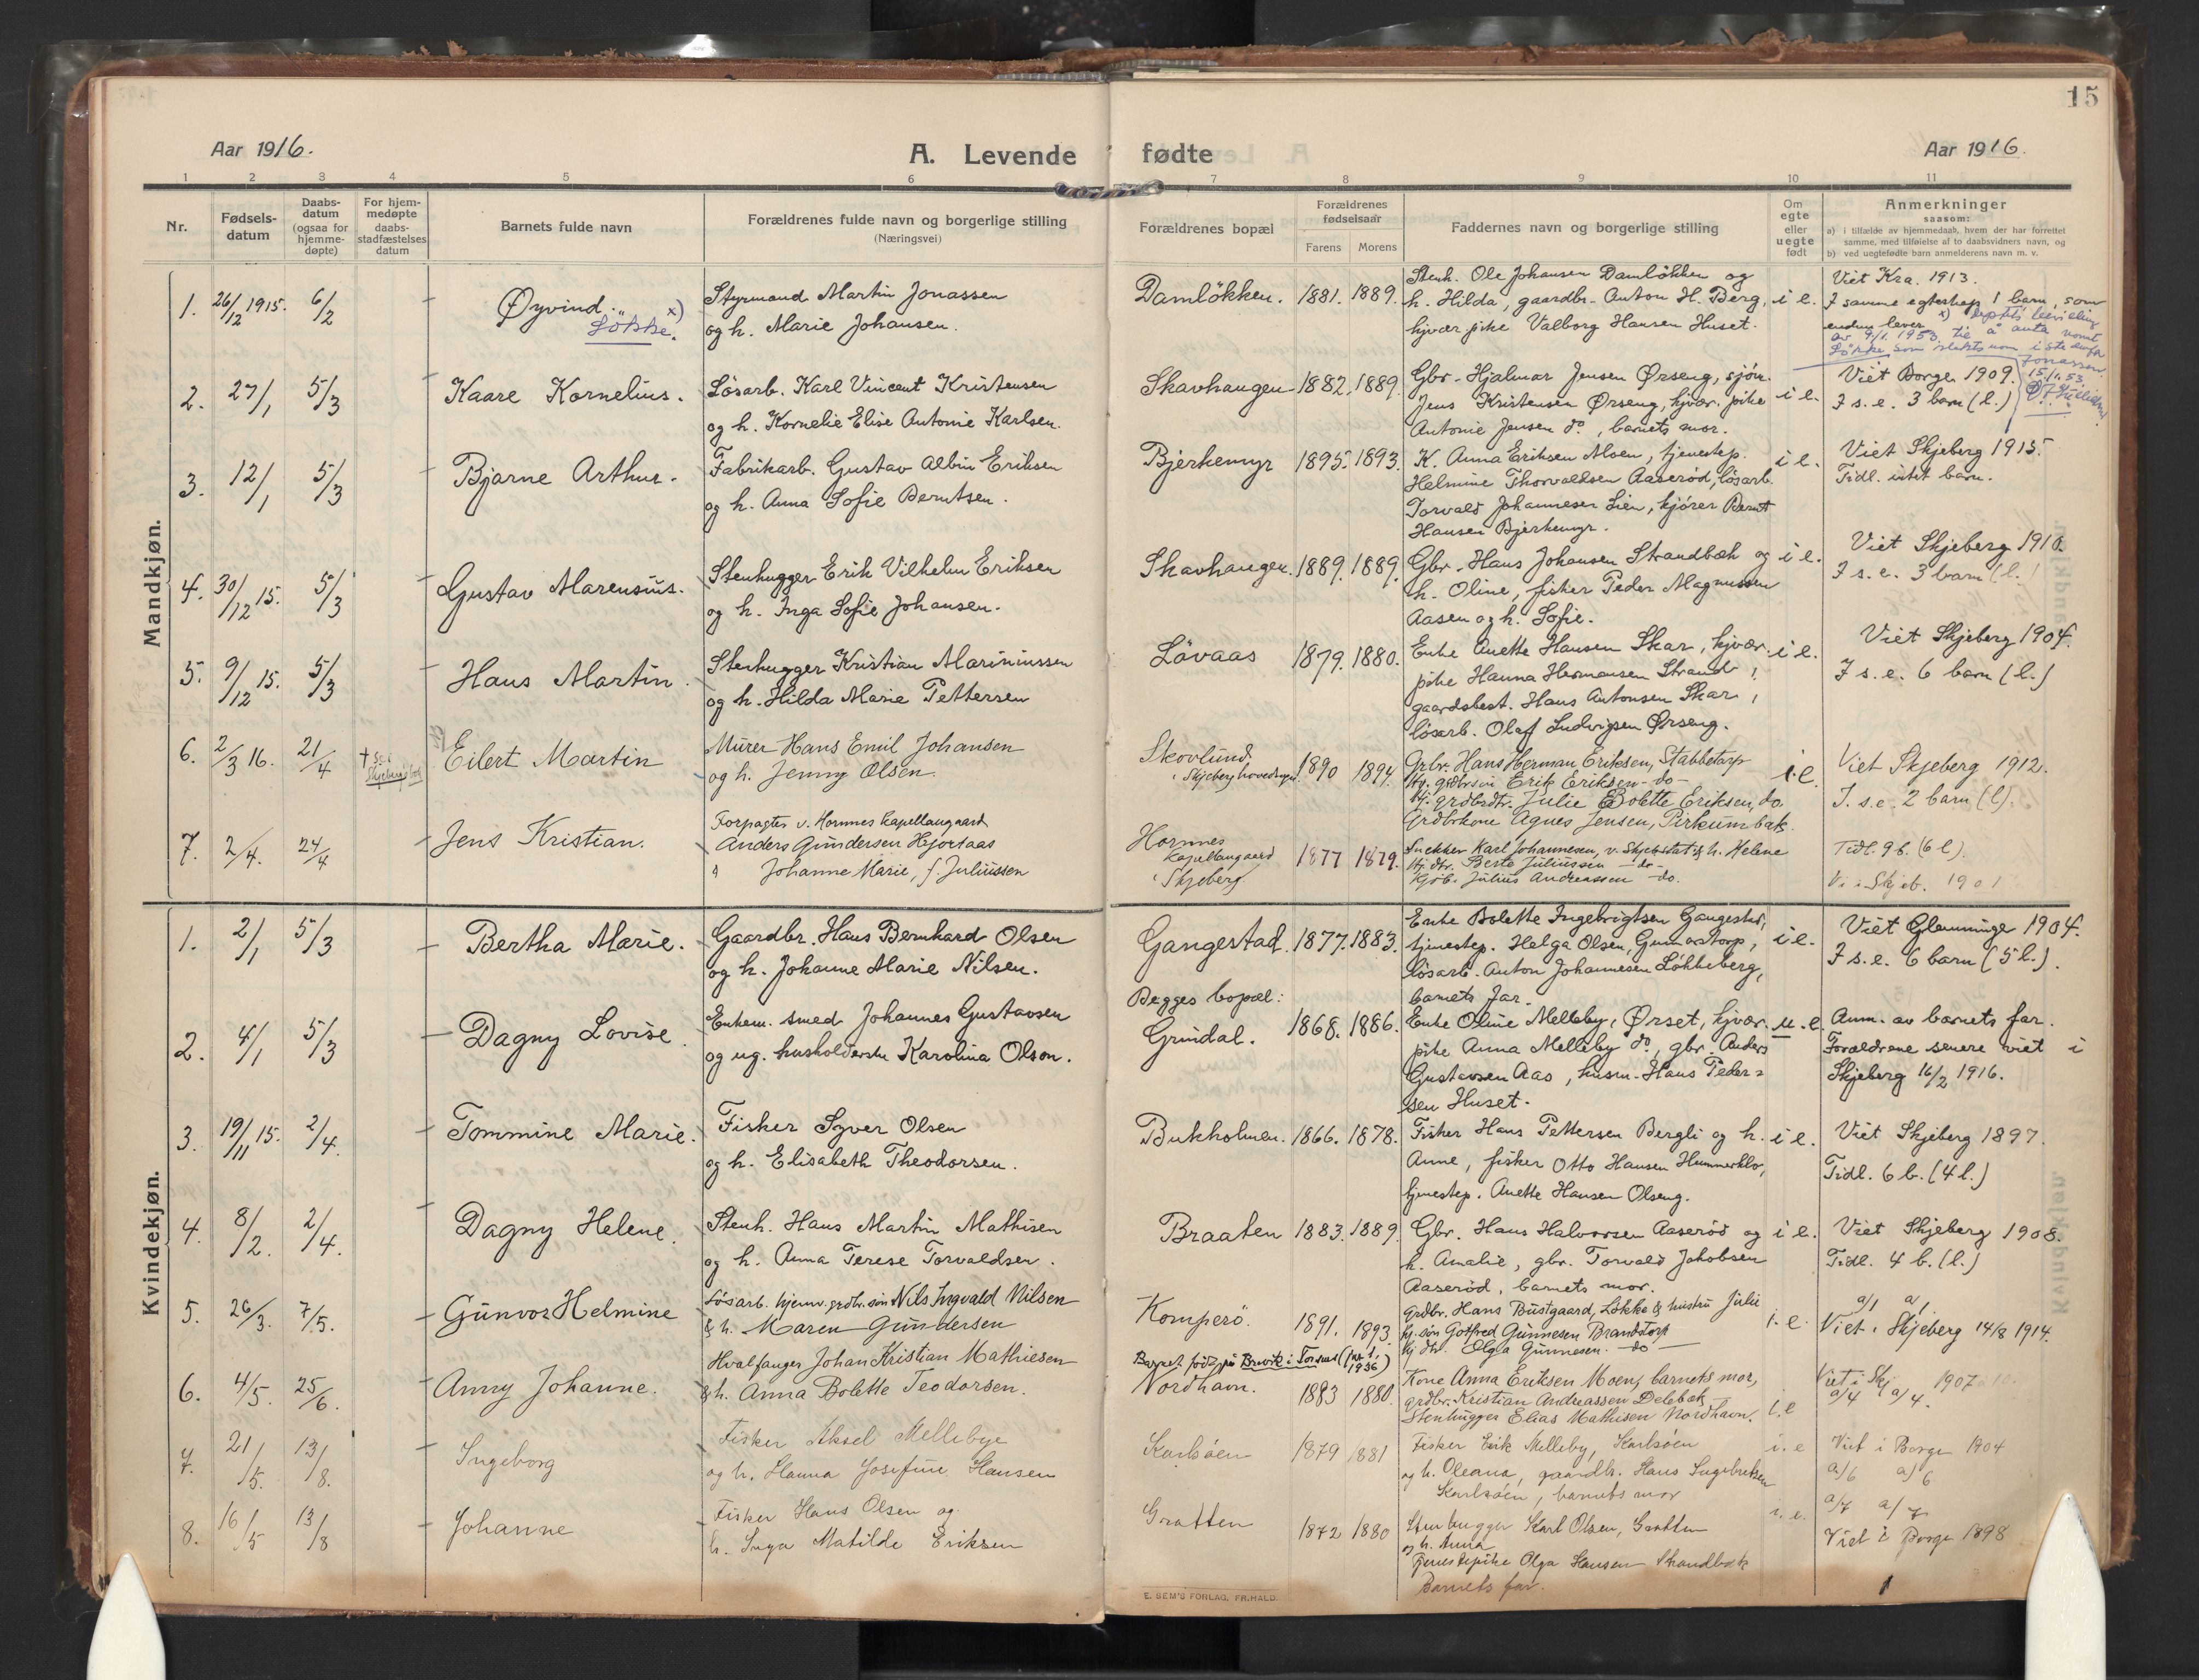 15
Aar 1916.
A. Levende fødte
Aar 1916.
1 2 3 4 5 6 7 8 9 10 11
Nr.
Fødsels-
datum
Daabs-
datum
(ogsaa for
hjemme-
døpte)
For hjem-
medøpte
daabs-
stadfæstelses
datum
Barnets fulde navn
Forældrenes fulde navn og borgerlige stilling
(Næringsvei)
Forældrenes bopæl
Forældrenes
fødselsaar
Farens Morens
Faddernes navn og borgerlige stilling
Om
egte
eller
uegte
født
Anmerkninger
saasom:
a) i tilfælde av hjemmedaab, hvem der har forrettet
samme, med tilføielse af to daabsvidners navn, og
b) ved uegtefødte barn anmelderens navn m. v.
Mandkjøn.
1. 26/12 1915. 6/2 – Øyvind. x)
Løkke.
Styrmand Martin Jonassen
og h. Marie Johansen.
Damløkken. 1881. 1889.
Stenh. Ole Johansen Damløkken og
h. Hilda, gaardbr. Anton H. Berg,
hjvær pike Valborg Hansen Huset.
i e.
Viet Kra. 1913.
I samme egteskap 1 barn, som
endnu lever
av 9/1. 1953 til å anta navnet
Løkke som slektsnavn istedenfor
Jonassen.
15/1.53
2. 27/1 5/3 – Kaare Kornelius.
Løsarb. Karl Vincent Kristensen
og h. Kornelie Elise Antonie Karlsen.
Skavhaugen 1882. 1889.
Gbr. Hjalmar Jensen Ørseng, sjøm.
Jens Kristensen Ørseng, hjvær. pike
Antonie Jensen do, barnets mor.
i e.
Viet Borge 1909.
I s. e. 3 barn (l.)
3. 12/1 5/3 – Bjarne Arthur.
Fabrikarb. Gustav Albin Eriksen
og h. Anna Sofie Berntsen.
Bjerkemyr 1895. 1893.
K. Anna Eriksen Moen, tjenestep.
Helmine Thorvaldsen Aaserød, løsarb.
Torvald Johannesen Lien, kjører Bernt
Hansen Bjerkemyr.
i e.
Viet Skjeberg 1915.
Tidl. intet barn.
4. 30/12 15. 5/3 – Gustav Marensius.
Stenhugger Erik Vilhelm Eriksen
og h. Inga Sofie Johansen.
Skavhaugen. 1889. 1889.
Gbr. Hans Johansen Strandbæk og
h. Oline, fisker Peder Magnussen
Aasen og h. Sofie.
i e.
Viet Skjeberg 1910.
I s. e. 3 barn (l.)
5. 9/12 15. 5/3 – Hans Martin.
Stenhugger Kristian Mariniussen
og h. Hilda Marie Pettersen
Løvaas 1879. 1880.
Enke Anette Hansen Skar, hjvær.
pike Hanna Hermansen Strand,
gaardsbest. Hans Antonsen Skar,
løsarb. Olaf Ludvigsen Ørseng.
i e.
Viet Skjeberg 1904.
I s. e. 6 barn (l.)
6. 2/3 16. 21/4 Eilert Martin
Murer Hans Emil Johansen
og h. Jenny Olsen.
Skovlund,
i Skjeberg hovedsogn. 1890 1894
Grbr. Hans Herman Eriksen, Stabbetorp
Hj. grdbrsøn Erik Eriksen – do –
Hj. grdbrdtr. Julie Bolette Eriksen, do.
Grdbrkone Agnes Jensen, Pirkumbak.
i.e.
Viet Skjeberg 1912.
I. s. e. 2 barn (l).
7. 2/4. 24/4 – Jens Kristian.
Forpagter v. Hornnes Kapellangaard
Anders Gundersen Hjortaas
" Johanne Marie, f. Juliussen
Hornnes
Kapellangaard
i Skjeberg. 1877 1879.
Snekker Karl Johannesen, v. Skjebstad & h. Helene
Hj. dtr. Berte Juliussen – do –
Kjøb. Julius Andreassen – do.
Tidl. 9 b. (6 l).
Vi. i Skjeb. 1901
Kvindekjøn.
1. 2/1 5/3 – Bertha Marie.
Gaardbr. Hans Bernhard Olsen
og h. Johanne Marie Nilsen.
Gangestad. 1877. 1883.
Enke Bolette Ingebrigtsen Gangestad,
tjenestep. Helga Olsen, Gunnarstorp,
løsarb. Anton Johannesen Løkkeberg,
barnets far.
i e.
Viet Glemminge 1904.
I s. e. 6 barn (5 l.).
2. 4/1 5/3 – Dagny Lovise.
Enkem. smed Johannes Gustavsen
og ug. husholderske Karolina Olson.
Begges bopæl:
Grindal. 1868. 1886.
Enke Oline Melleby, Ørset, hjvær.
pike Anna Melleby do, gbr. Anders
Gustavsen Aas, husm. Hans Peder=
sen Huset.
u. e.
Anm. av barnets far.
Forældrene senere viet i
Skjeberg 16/2 1916.
3. 19/11 15. 2/4. – Tommine Marie.
Fisker Syver Olsen
og h. Elisabeth Theodorsen.
Bukholmen. 1866. 1878.
Fisker Hans Pettersen Bergli og h.
Anne, fisker Otto Hansen Hummerklo,
tjenestep. Anette Hansen Olseng.
i e.
Viet Skjeberg 1897.
Tidl. 6 b. (4 l.)
4. 8/2. 2/4. – Dagny Helene.
Stenh. Hans Martin Mathisen
og h. Anna Terese Torvaldsen.
Braaten 1883. 1889.
Gbr. Hans Halvorsen Aaserød og
h. Amalie, gbr. Torvald Jakobsen
Aaserød, barnets mor.
i e.
Viet Skjeberg 1908.
Tidl. 4 b. (l.)
5. 26/3. 7/5. – Gunvor Helmine
Løsarb. hjemv. grdbr. søn Nils Ingvald Nilsen
& h. Maren Gundersen
Komperø. 1891. 1893
Grdbr. Hans Bustgaard, Løkke & hustru Julie
hj. søn Gotfred Gunnesen Brandstorp
hj. dtr. Olga Gunnesen. – do –
i. e.
a/1 a/1.
Viet i Skjeberg 14/8 1914.
6. 4/5. 25/6. – Anny Johanne.
Hvalfanger Johan Kristian Mathiesen
& h. Anna Bolette Teodorsen.
Barnet født på Brevik i Torsnes
Nordhavn. 1883 1880.
Kone Anna Eriksen Moen, barnets mor,
grdbr. Kristian Andreassen Delebæk
Stenhugger Elias Mathisen Nordhavn.
i. e
Viet i Skj. 1907
a/4 a/4.
7. 21/5. 13/8. – Ingeborg
Fisker Aksel Mellebye
og h. Hanna Josefine Hansen
Karlsøen 1879 1881
Fisker Erik Melleby, Karlsøen
og h. Oleana, gaardbr. Hans Ingebretsen
Karlsøen, barnets mor
i. e
Viet i Borge 1904
a/6 a/6
8. 16/5 13/8 – Johanne
Fisker Hans Olsen og
h. Inga Matilde Eriksen
Gratten 1872 1880
Stenhugger Karl Olsen, Gratten
og h. Anna
Tjenestepike Olga Hansen Strandbæk
Barnets far.
i. e.
a/7 a/7
Viet i Borge 1898
E. SEM'S FORLAG, FR.HALD.